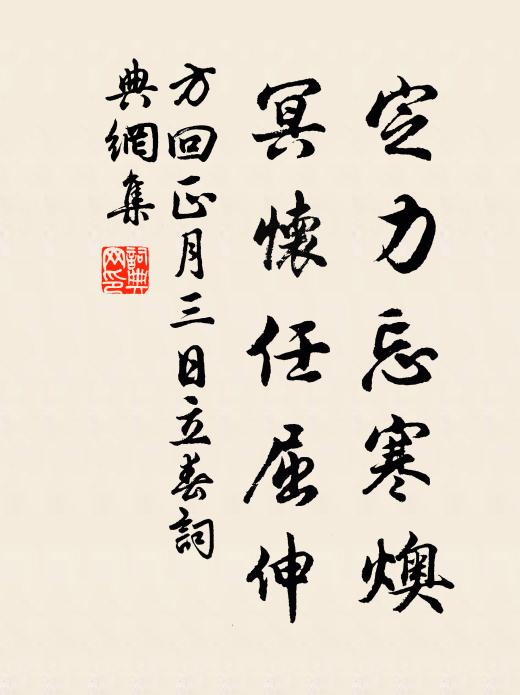 定力忘寒燠
冥懷任屈伸
方回正月三日立春詞
典網集
詞典
网印